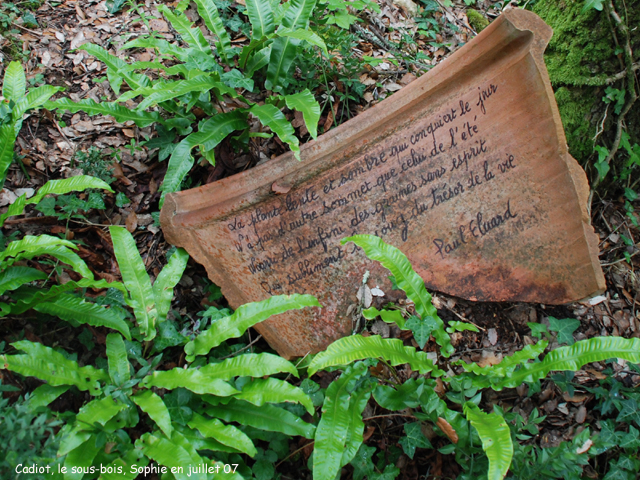 La plante lente et sombre qui conquiert le jour
N'a pas d'autre sommet que celui de l'été
mais de l'enfoui des graines sans esprit
Pur rudiment sans poing du trésor de la vie
Paul Eluard
Cadiot, le sous-bois, Sophie en juillet 07